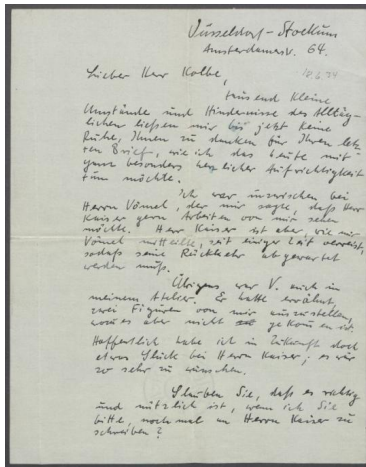 Düsseldorf-Stockum
Amsterdamerstr. 64.
Lieber Herr Kolbe,
tausend kleine
Umstände und Hindernisse des Alltäg-
lichen ließen mir bis jetzt keine
Ruhe, Ihnen zu danken für Ihren letz-
ten Brief, wie ich das heute mit
ganz besonders herzlicher Aufrichtigkeit
tun möchte.
Ich war inzwischen bei
Herrn Vömel, der mir sagte, daß Herr
Kaiser gern Arbeiten von mir sehen
möchte. Herr Kaiser ist aber, wie mir
Vömel mitteilte, seit einiger Zeit verreist,
sodaß seine Rückkehr abgewartet
werden muß.
Übrigens war V. auch in
meinem Atelier. Er hatte erwähnt,
zwei Figuren von mir auszustellen,
wozu es aber nicht gekommen ist.
Hoffentlich habe ich in Zukunft doch
etwas Glück bei Herrn Kaiser; es wär
so sehr zu wünschen.
Glauben Sie, daß es richtig
und nützlich ist, wenn ich Sie
bitte, noch mal an Herrn Kaiser zu
schreiben?